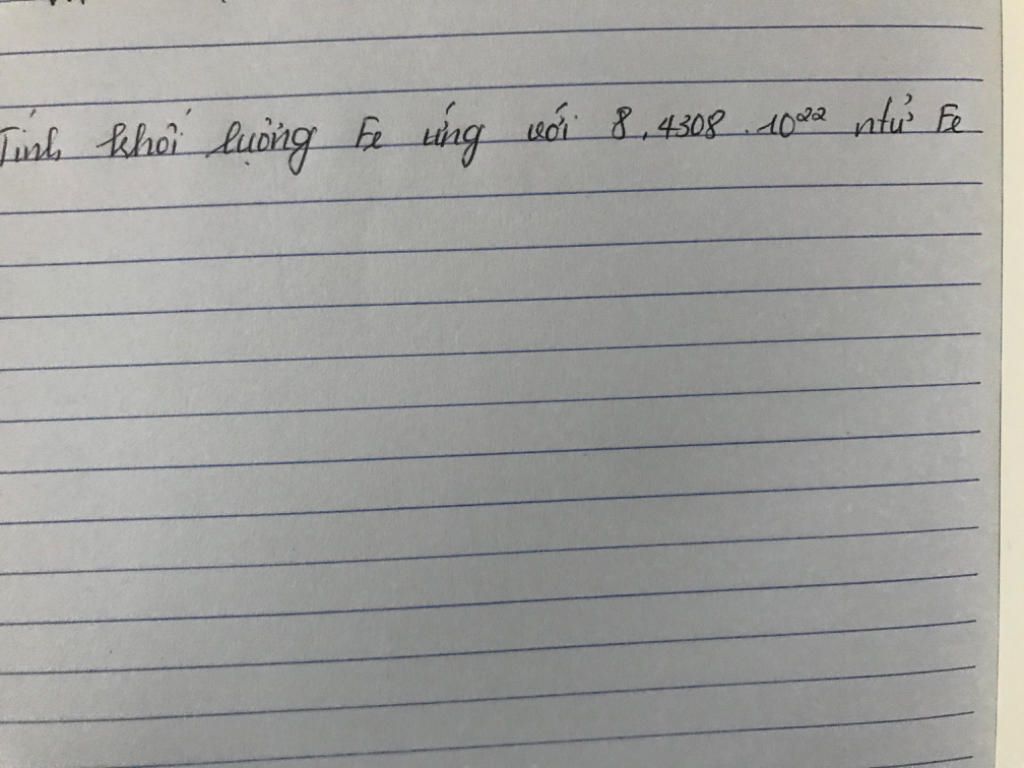 Tính khối lượng Fe ứng với 8,4308.10²² ntử Fe